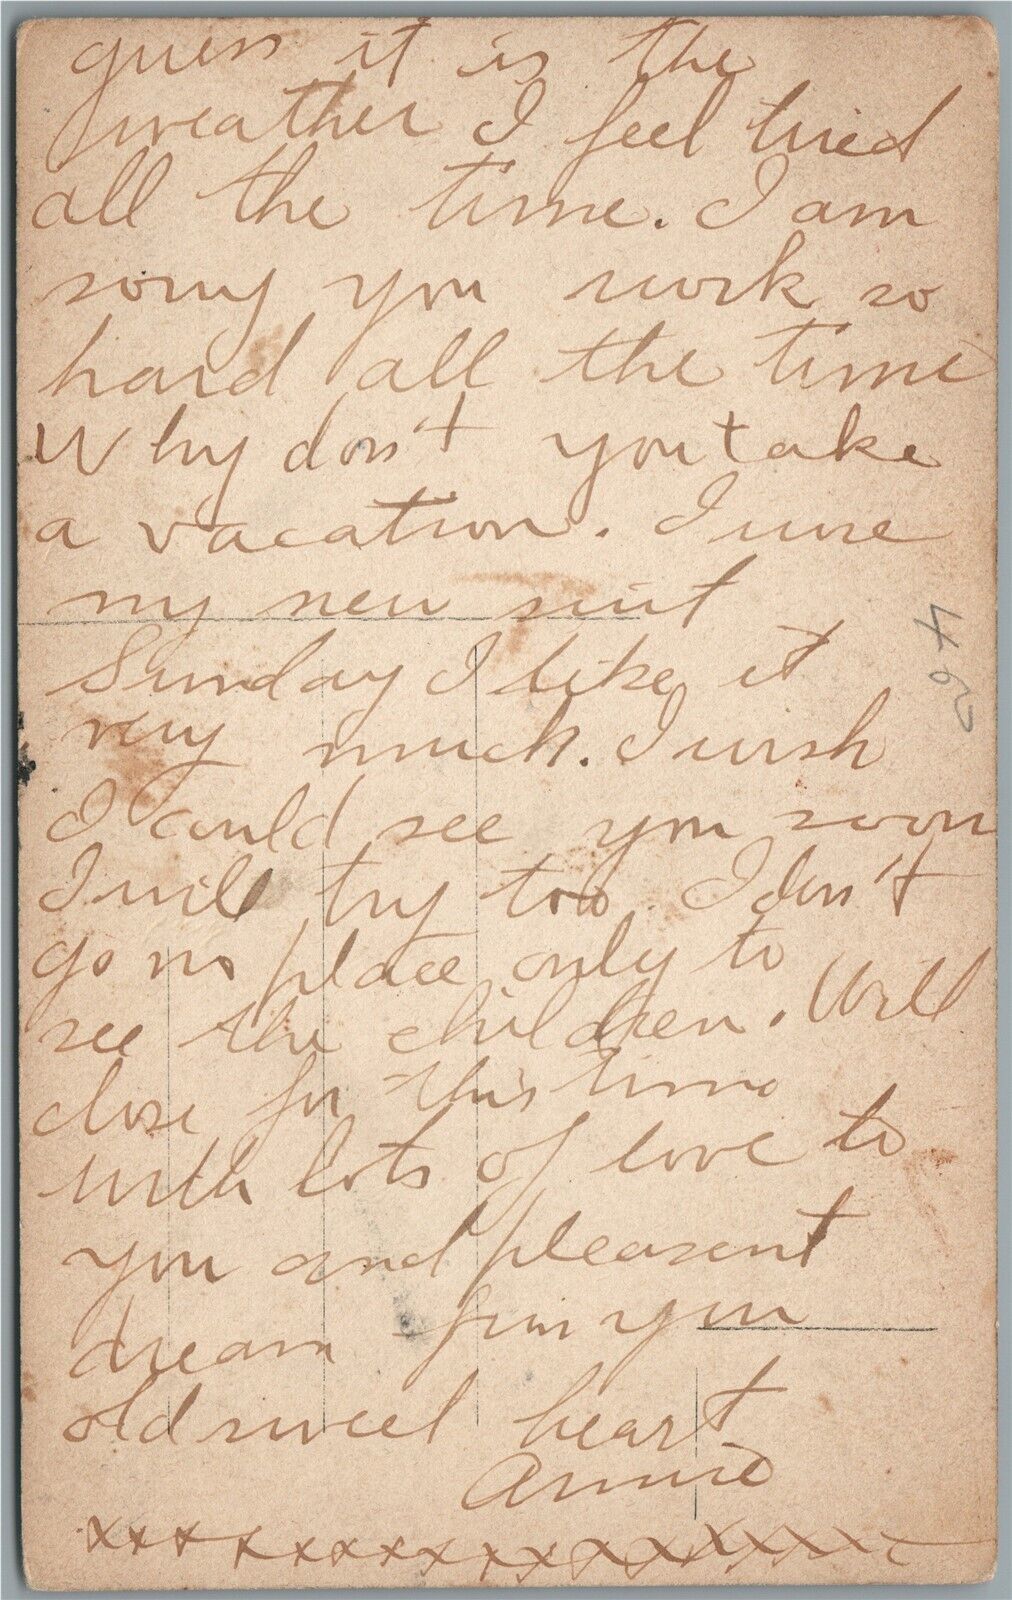 guess it is the
weather I feel tired
all the time. I am
sorry you work so
hard all the time
Why don't you take
a vacation. I wore
my new suit
Sunday I like it
very much. I wish
I could see you soon
I will try too. I don't
go no place only to
see the children. Will
close for this time
with lots of love to
you and pleasant
dream from you
old sweet heart
Annie
xxxxxxxxxxxxxxxx